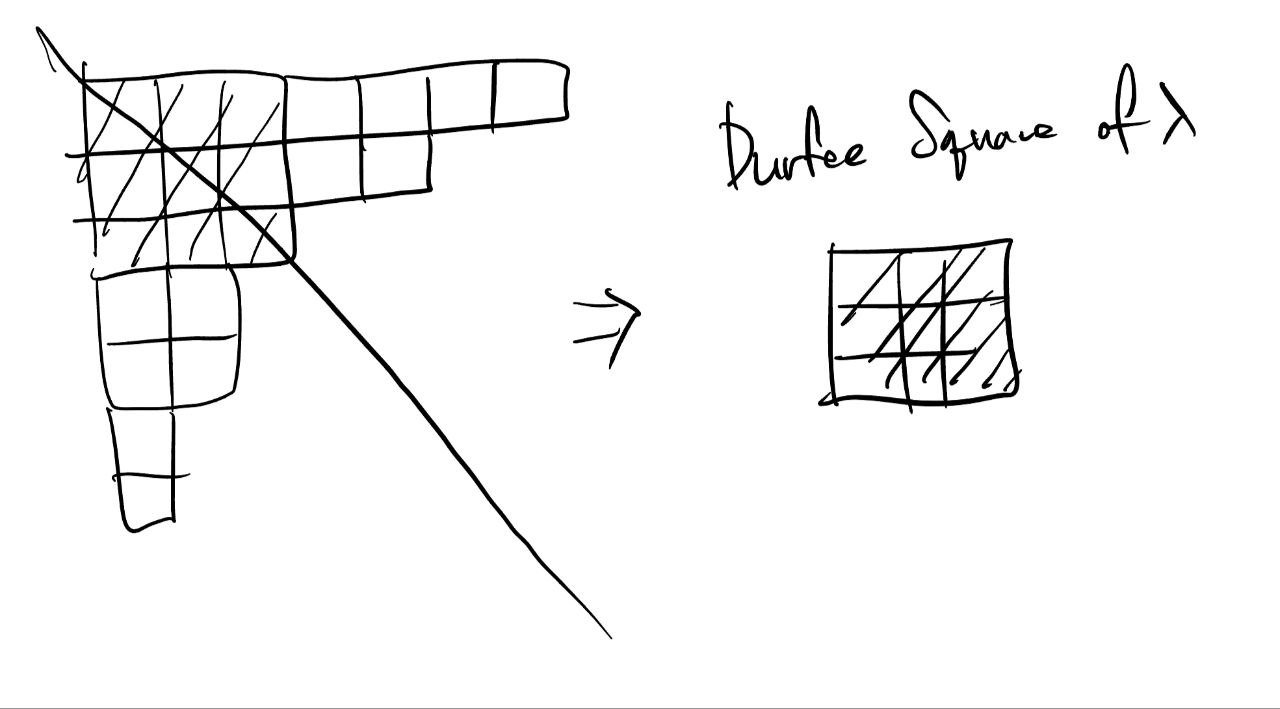 Durfee Square of λ